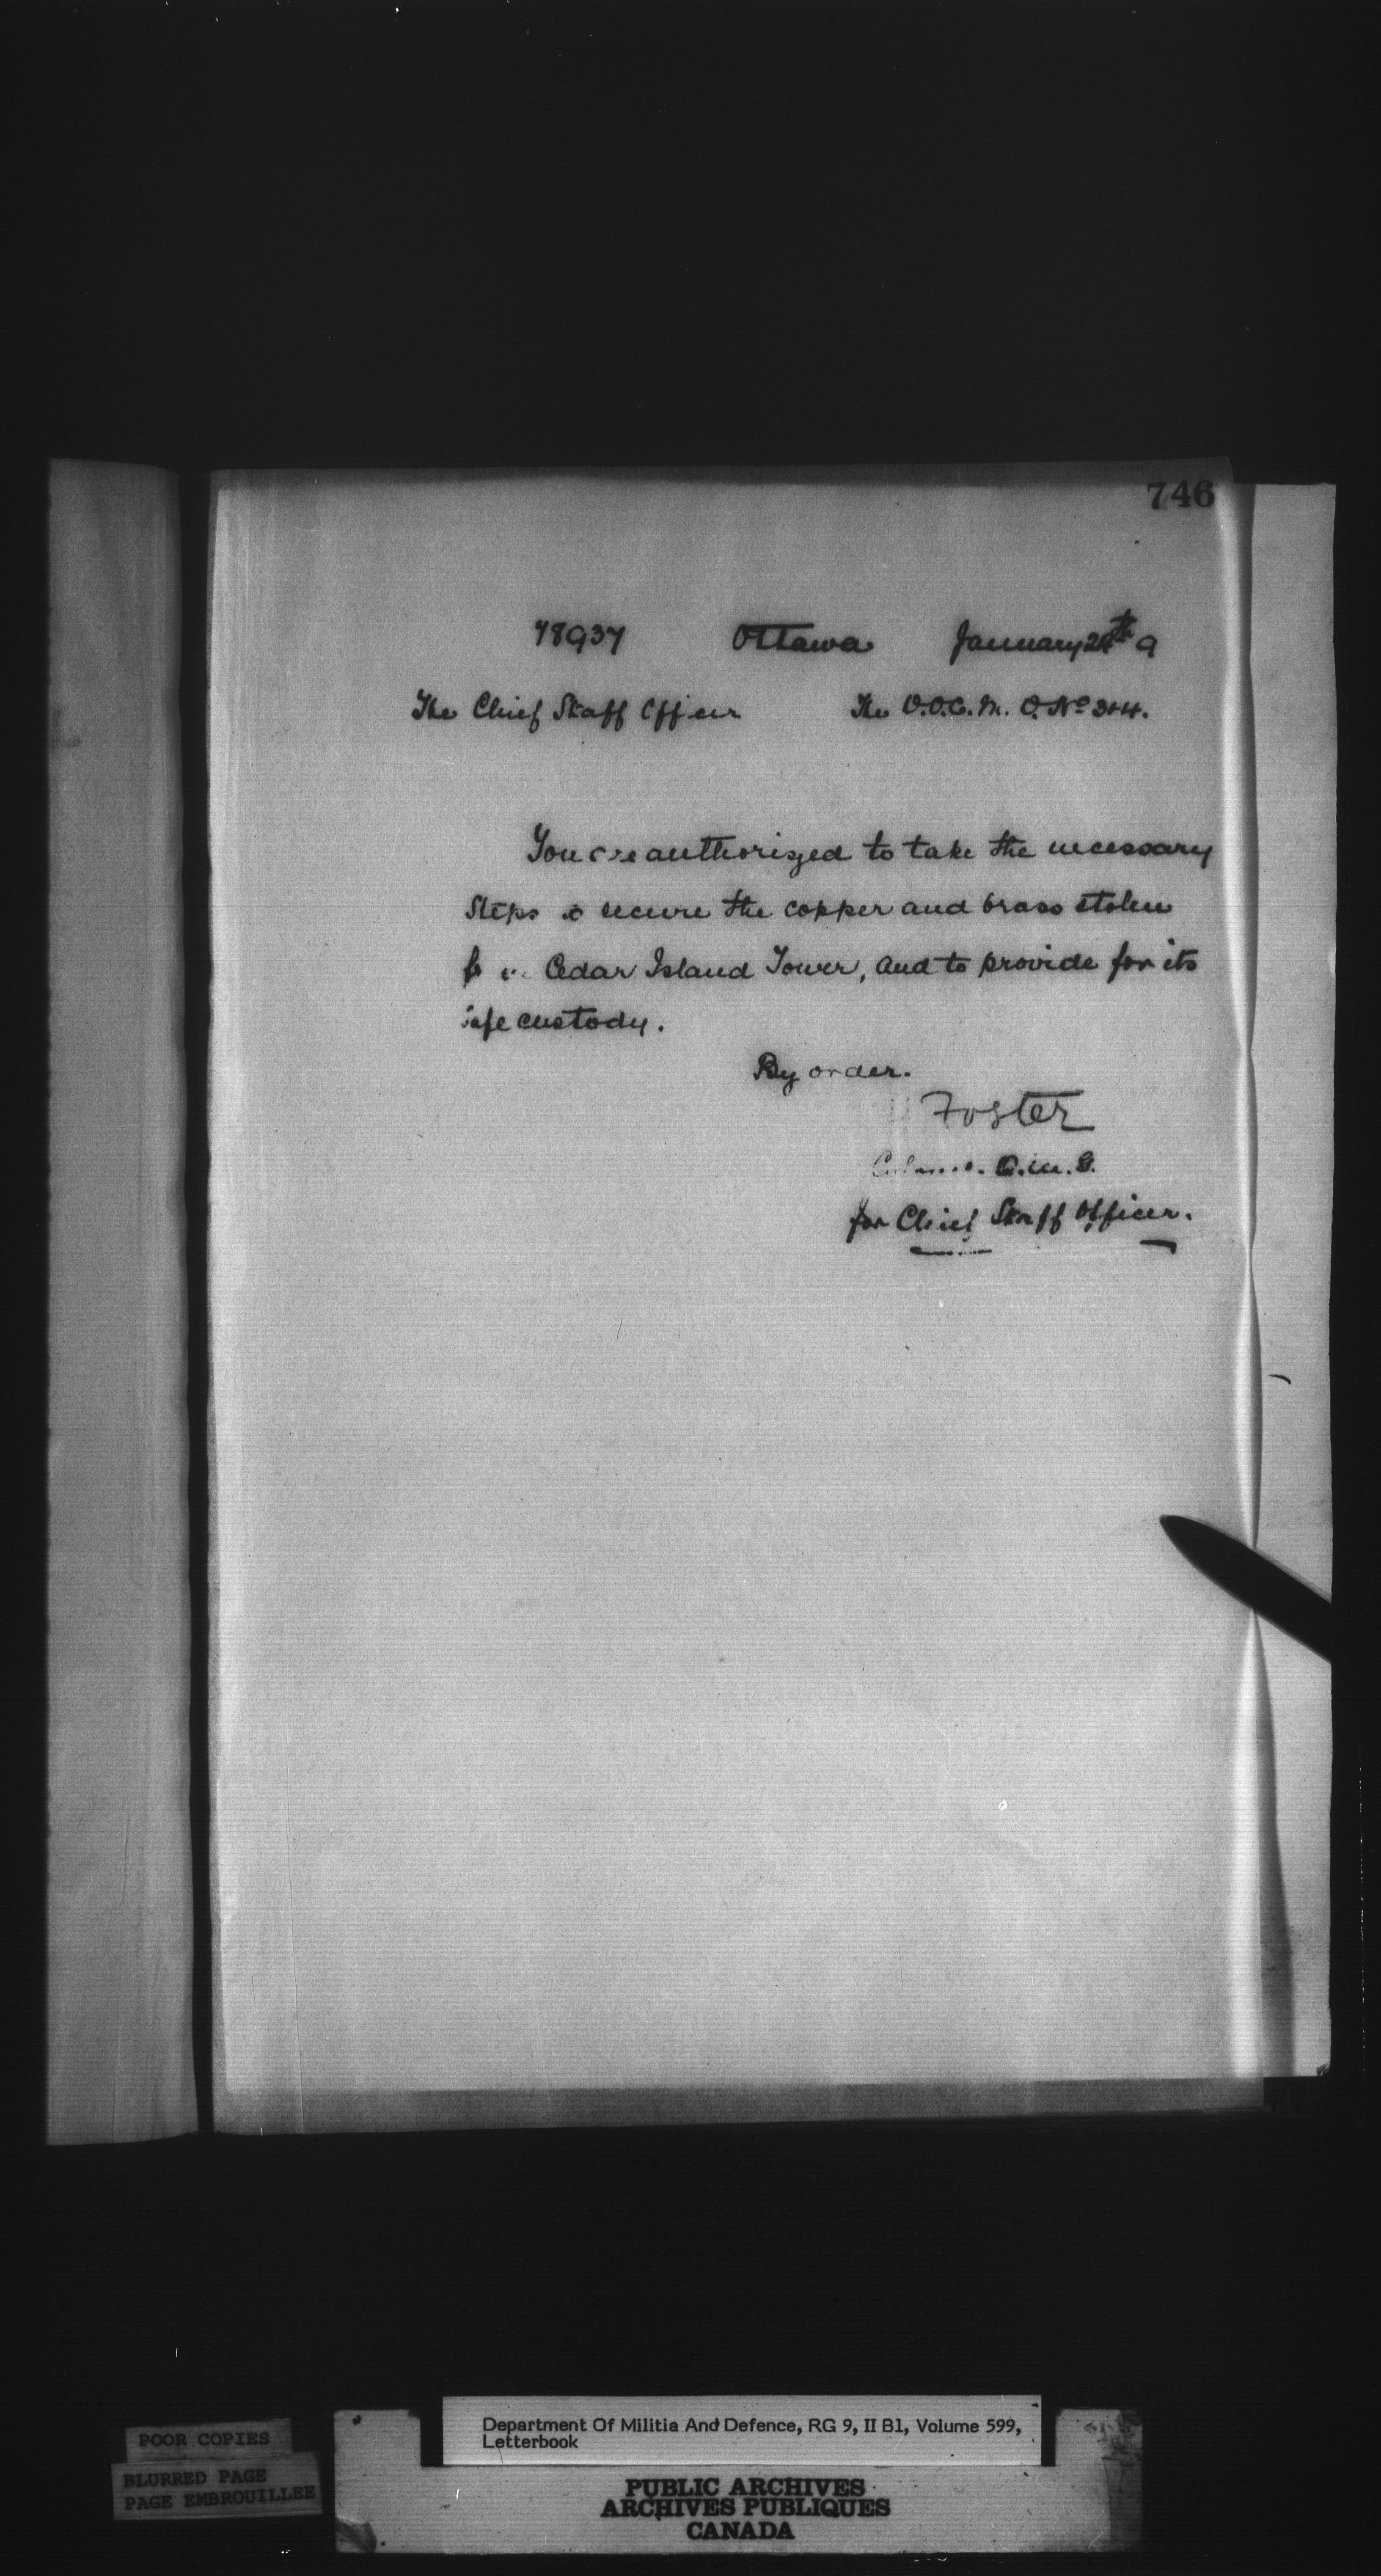 746
78937 Ottawa January 24th 9
The Chief Staff Officer The D.O.C. M. D. No 3+4.
You are authorized to take the necessary
steps to secure the copper and brass stolen
Cedar Island Tower, and to provide for its
safe custody.
By order.
Foster
Q.M.G.
for Chief Staff Officer.
POOR COPIES
BLURRED PAGE
PAGE EMBROUILLEE
Department Of Militia And Defence, RG 9, II B1, Volume 599,
Letterbook
PUBLIC ARCHIVES
ARCHIVES PUBLIQUES
CANADA